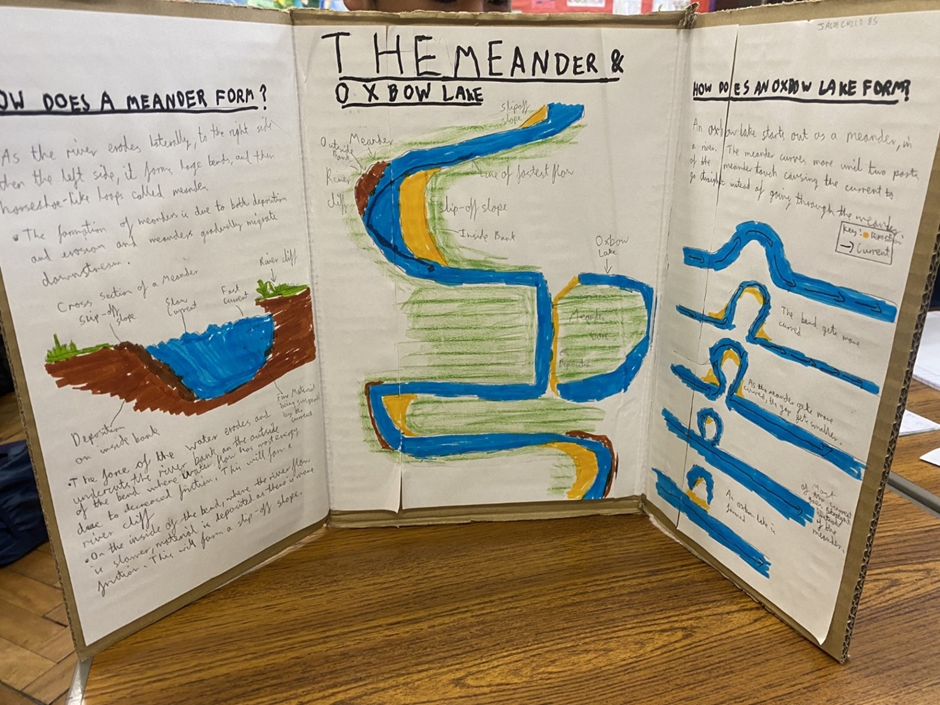 OW DOES A MEANDER FORM?
As the river erodes laterally, to the right side
then the left side, it forms large bends, and then
horseshoe-like loops called meander.
• The formation of meanders is due to both deposition
and erosion and meanders gradually migrate
downstream.
Cross section of a Meander
Slip-off
slope
Slow
Current
Fast
current
River cliff
Deposition
on inside bank
Fine Material
being
by the
current
• The force of the water erodes and
undercuts the river bank, on the outside
of the bend where water flow has most energy
due to decreased friction. This will form a
river cliff.
• On the inside of the bend, where the river flow
is slower, material is deposited as there is more
friction. This will form a slip-off slope.
THE MEANDER &
OXBOW LAKE
slip off
slope
Meander
Outside
Bank
River
cliff
Line of fastest flow
slip-off slope
Inside Bank
Oxbow
Lake
HOW DOES AN OXBOW LAKE FORM?
An oxbow lake starts out as a meander, in
a river. The meander curves more until two parts
of the meander touch causing the current to
go straight instead of going through the meander.
Key:
→ Current
The bend gets more
curved
As the meander gets more
curved, the gap gets smaller.
Most
of current
goes straight
instead
of the
meander.
An oxbow lake is
formed